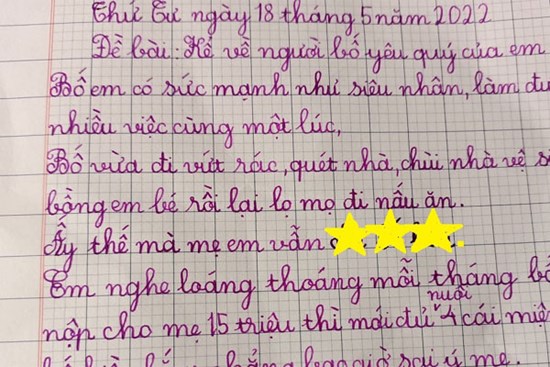 Thứ Tư ngày 18 tháng 5 năm 2022
Đề bài: Kể về người bố yêu quý của em
Bố em có sức mạnh như siêu nhân, làm đư
nhiều việc cùng một lúc,
Bố vừa đi vứt rác, quét nhà, chùi nhà vệ s
bồng em bé rồi lại lọ mọ đi nấu ăn.
Ấy thế mà mẹ em vẫn
Em nghe loáng thoáng mỗi tháng bố
nuôi
nộp cho mẹ 15 triệu thì mới đủ 4 cái miệ
bao giờ sai ý mẹ.